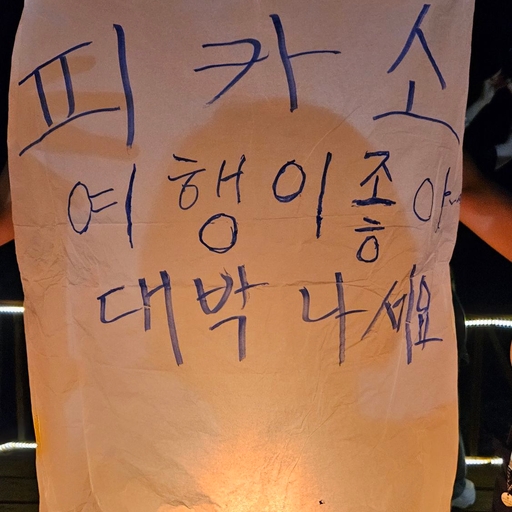 피카소
여행이좋아
대박나세요